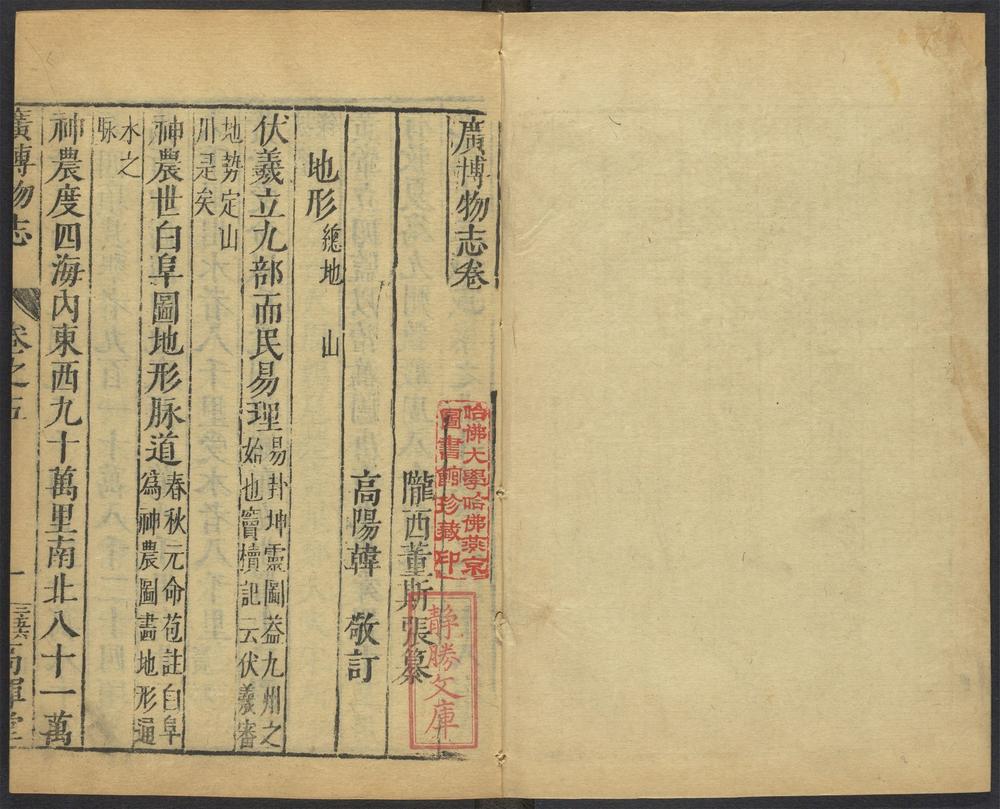 廣博物志卷
隴西董斯張纂
高陽韓 敬訂
地形 總地 山
伏羲立九部而民易理 易卦坤靈圖益九州之
始也竇櫝記云伏羲審
地勢定山
川是矣
神農世白阜圖地形脉道 春秋元命苞註白阜
為神農圖畫地形通
水之
脉
神農度四海內東西九十萬里南北八十一萬
廣博物志 卷之五 一 三五六 高暉堂
哈佛大學哈佛燕京
圖書館珍藏印
靜勝文庫